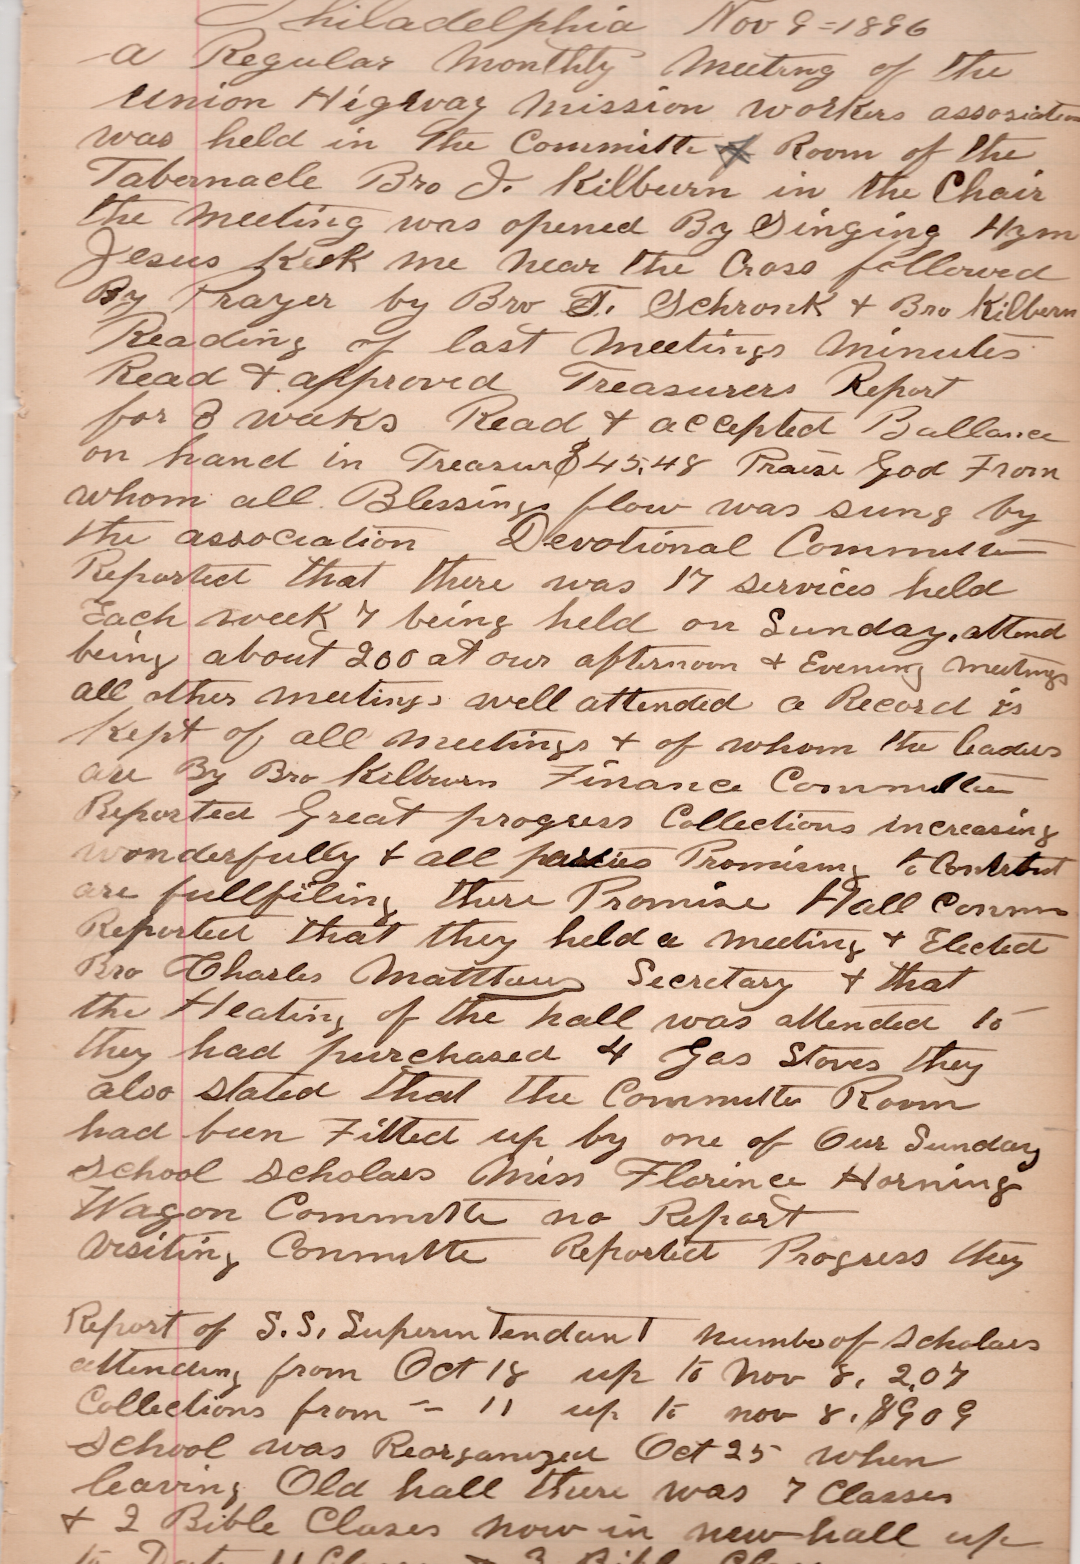 Philadelphia Nov 9 = 1896
a Regular Monthly Meeting of the
Union Higway Mission workers association
was held in the Committe Room of the
Tabernacle Bro J. Kilburn in the Chair
the Meeting was opened By Singing Hym
Jesus Keek me near the Cross followed
By Prayer by Bro T. Schronk & Bro Kilburn
Reading of last Meetings Minutes
Read & approved Treasurers Report
for 3 weeks Read & accepted Ballance
on hand in Treasur $45.48 Praise God From
whom all Blessings flow was sung by
the association Devotional Committee
Reported that there was 17 services held
Each week 7 being held on Sunday. attend
being about 200 at our afternoon & Evening meetings
all other meetings well attended a Record is
Kept of all meetings & of whom the leaders
are By Bro Kilburn Finance Committee
Reported Great progress Collections increasing
wonderfully & all parties Promising to Contribut
are fullfiling there Promise Hall Comm
Reported that they held a meeting & Elected
Bro Charles Matthews Secretary & that
the Heating of the hall was attended to
they had purchased 4 Gas Stoves they
also stated that the Committe Room
had been Fitted up by one of Our Sunday
School scholars Miss Florince Horning
Wagon Committe no Report
Visiting Committe Reported Progress they
Report of S.S. Superintendant numbe of scholars
attending from Oct 18 up to Nov 8. 2,07
Collections from - 11 up to nov 8. $9 09
School was Reorganized Oct 25 when
leaving Old hall there was 7 Classes
& 2 Bible Clases now in new hall up
to Date 11 Class & 3 Bible Class